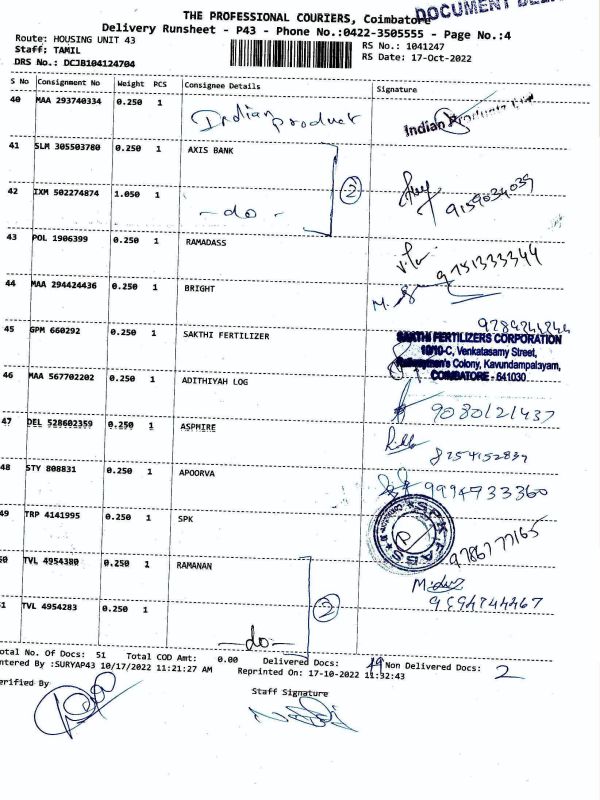 THE PROFESSIONAL COURIERS, Coimbatore
DOCUMENT
Delivery Runsheet - P43 - Phone No.:0422-3505555 - Page No.:4
Route: HOUSING UNIT 43
RS No.: 1041247
Staff: TAMIL
RS Date: 17-Oct-2022
DRS No.: DCJB104124704
S No Consignment No Weight PCS Consignee Details Signature
40 MAA 293740334 0.250 1 Indian product Indian Products Ltd
41 SLM 305503780 0.250 1 AXIS BANK
42 IXM 502274874 1.050 1 -do- 2 9159034039
43 POL 1906399 0.250 1 RAMADASS 9751333344
44 MAA 294424436 0.250 1 BRIGHT M.
45 GPM 660292 0.250 1 SAKTHI FERTILIZER
SAKTHI FERTILIZERS CORPORATION
10/10-C, Venkatasamy Street,
Colony, Kavundampalayam,
COIMBATORE - 641030
46 MAA 567702202 0.250 1 ADITHIYAH LOG 9080121437
47 DEL 528602359 0.250 1 ASPMIRE 8254152837
48 STY 808831 0.250 1 APOORVA 9994733360
49 TRP 4141995 0.250 1 SPK SPK FABS 9786777165
50 TVL 4954380 0.250 1 RAMANAN
51 TVL 4954283 0.250 1 -do- 2
Total No. Of Docs: 51 Total COD Amt: 0.00 Delivered Docs: 49 Non Delivered Docs: 2
Entered By :SURYAP43 10/17/2022 11:21:27 AM Reprinted On: 17-10-2022 11:32:43
Verified By
Staff Signature